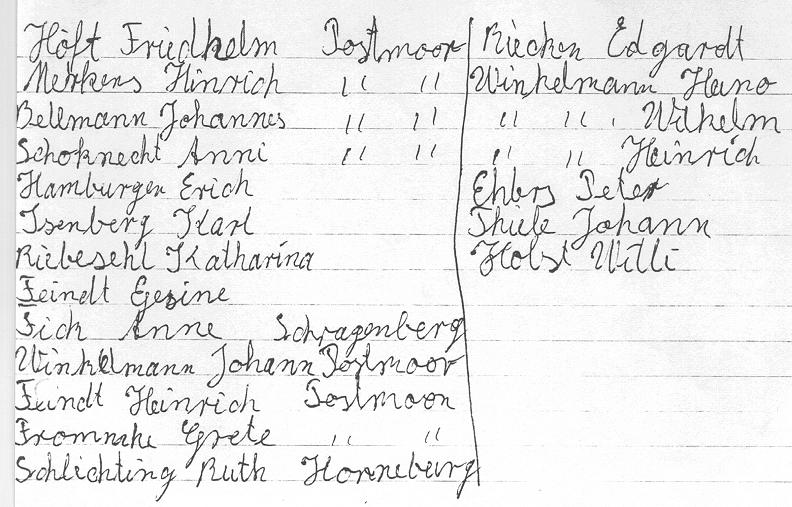 Höft Friedhelm Postmoor
Merkens Hinrich " "
Bellmann Johannes " "
Schoknecht Anni " "
Hamburger Erich
Isenberg Karl
Riebesehl Katharina
Feindt Gesine
Fick Anne Schragenberg
Winkelmann Johann Postmoor
Feindt Heinrich Postmoor
Grete " "
Schlichting Ruth Horneburg
Riecken Edgardt
Winkelmann Heino
" " Wilhelm
" " Heinrich
Ehlers Peter
Thiele Johann
Holst Willi